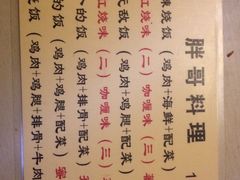 胖哥料理
烧饭（鸡肉+海鲜+配菜）
红烧味（二）咖喱味（三）
无敌饭（鸡肉+鸡腿+配菜）
的饭（鸡肉+排骨+配菜）
红烧味（二）咖喱味（三）
的饭（鸡肉+鸡腿+配菜）
饭（鸡肉+鸡腿+排骨+牛肉